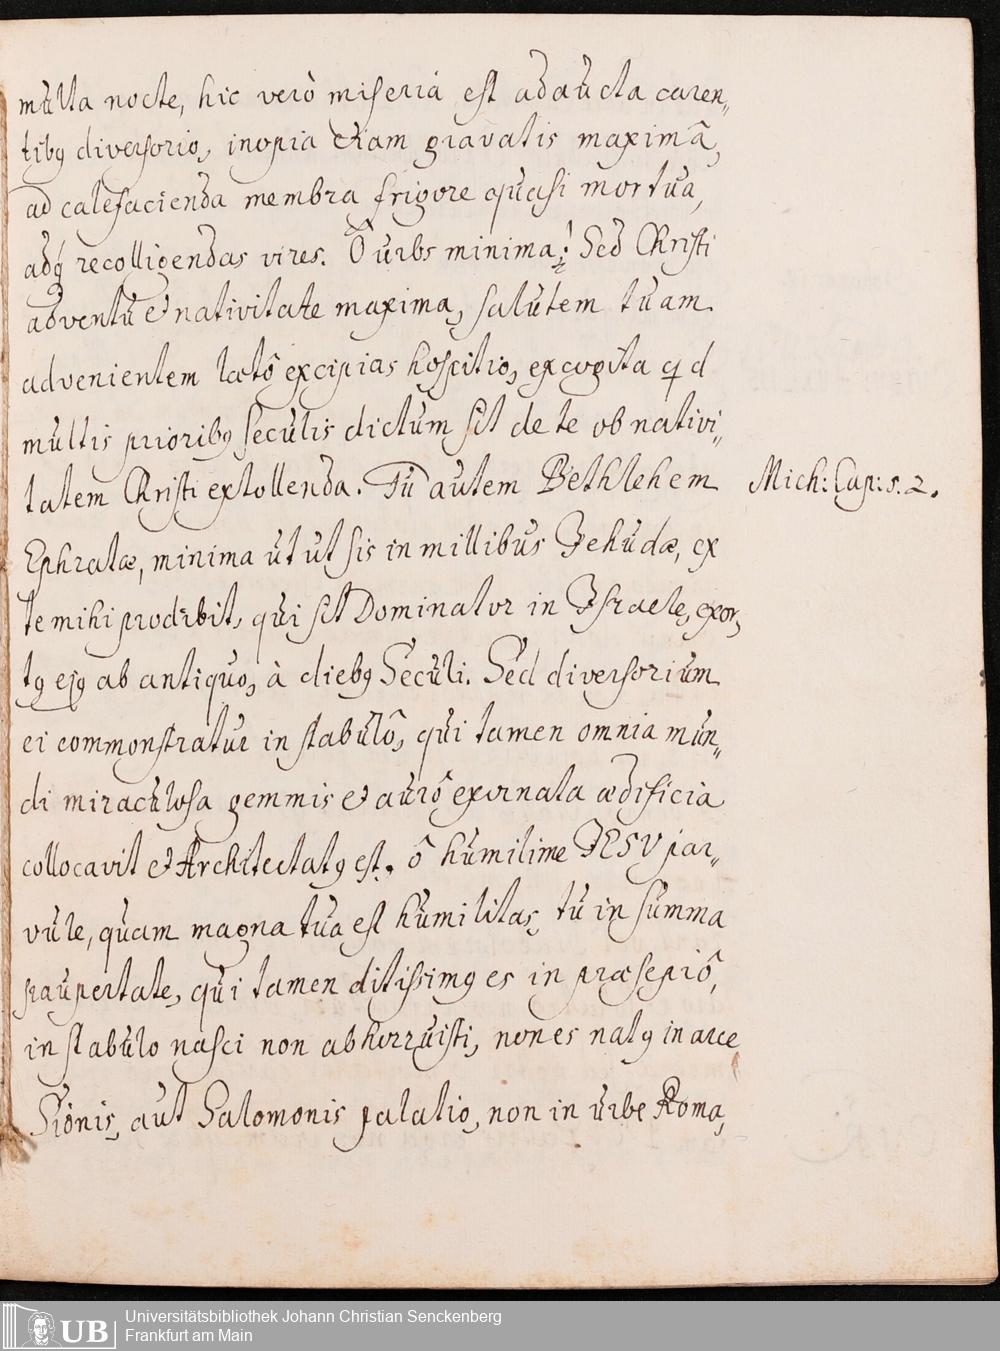 multa nocte, hic verò miseria est adaucta caren„
tibꝯ diversorio, inopia etiam gravatis maximâ,
ad calefacienda membra frigore quasi mortua,
adq́ recolligendas vires. Ô urbs minima! Sed Christi
adventu et nativitate maxima, salutem tuam
advenientem lætô excipias hospitio, excogita qd
multis prioribꝯ seculis dictum sit de te ob nativi„
tatem Christi extollenda. Tu autem Bethlehem
Mich: Cap: 5. 2.
Ephratæ, minima ut ut sis in millibus Jehudæ, ex
te mihi prodibit, qui sit Dominator in Israele, exor„
tꝯ ejꝯ ab antiquo, à diebꝯ Seculi. Sed diversorium
ei commonstratur in stabulô, qui tamen omnia mun„
di miraculosa gemmis et aurô exornata ædificia
collocavit et Architectatꝯ est. ô humilime JESU par„
vule, quam magna tua est humilitas, tu in summa
paupertate, qui tamen ditissimꝯ es in præsepiô,
in stabulo nasci non abhorruisti, non es natꝯ in arce
Sionis, aut Salomonis palatio, non in urbe Roma,
Universitätsbibliothek Johann Christian Senckenberg
Frankfurt am Main
UB